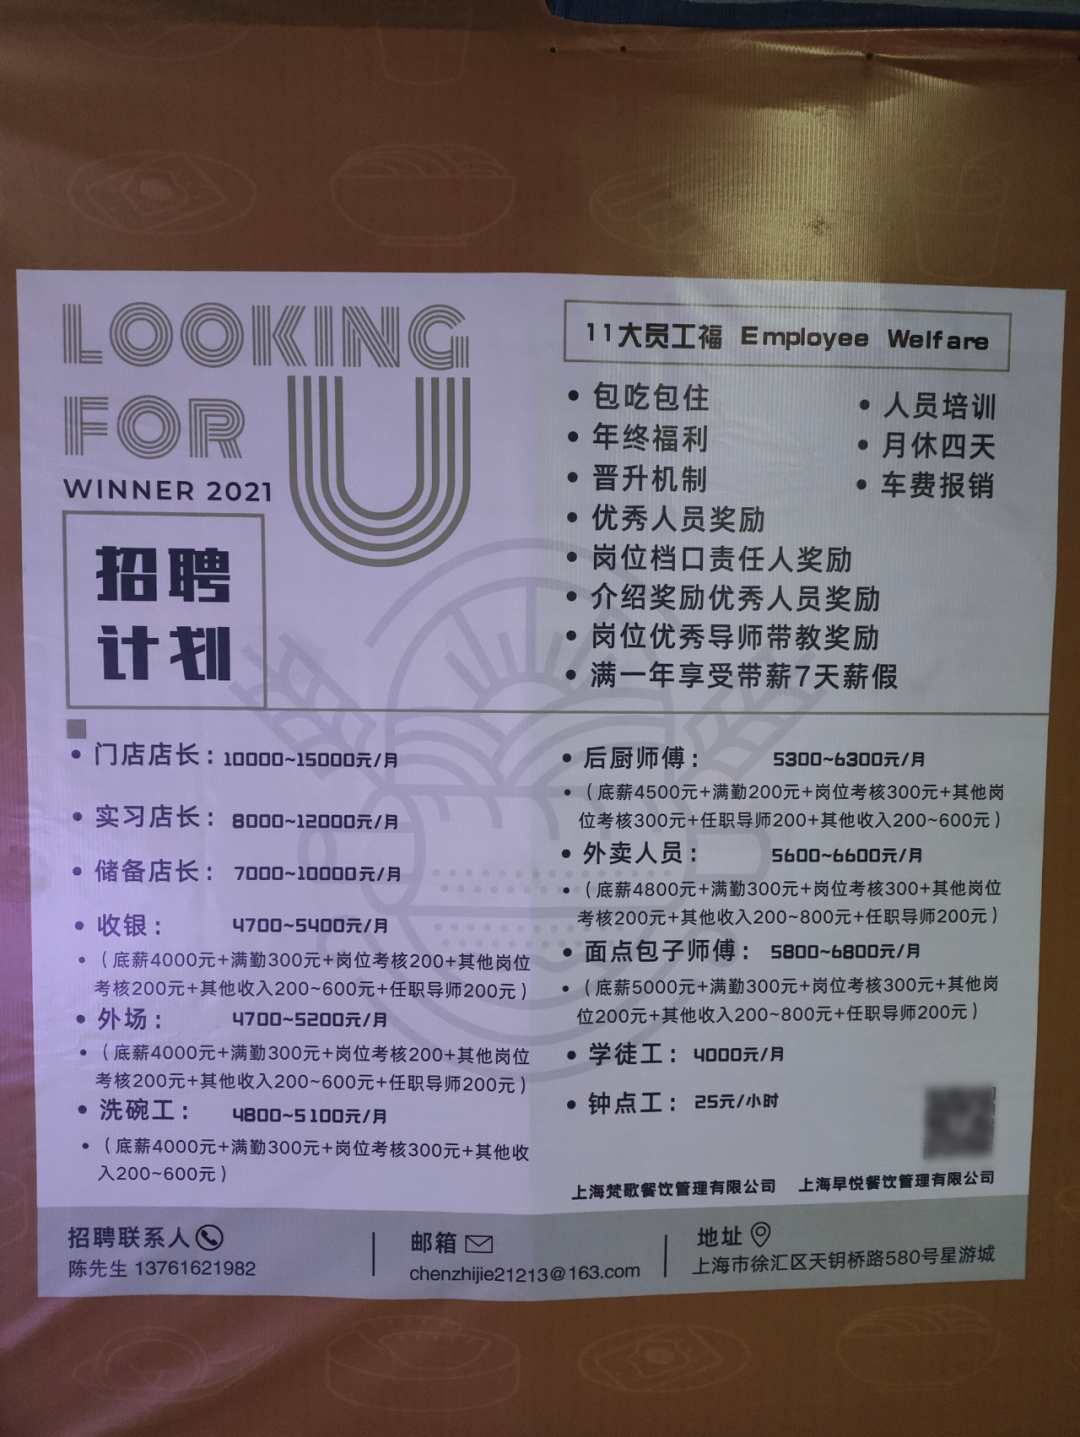 LOOKING
FOR U
WINNER 2021
招聘
计划
11大员工福 Employee Welfare
• 包吃包住
• 年终福利
• 晋升机制
• 优秀人员奖励
• 岗位档口责任人奖励
• 介绍奖励优秀人员奖励
• 岗位优秀导师带教奖励
• 满一年享受带薪7天薪假
• 人员培训
• 月休四天
• 车费报销
• 门店店长：10000~15000元/月
• 实习店长：8000~12000元/月
• 储备店长：7000~10000元/月
• 收银：4700~5400元/月
• （底薪4000元+满勤300元+岗位考核200+其他岗位
考核200元+其他收入200~600元+任职导师200元）
• 外场：4700~5200元/月
• （底薪4000元+满勤300元+岗位考核200+其他岗位
考核200元+其他收入200~600元+任职导师200元）
• 洗碗工：4800~5100元/月
• （底薪4000元+满勤300元+岗位考核300元+其他收
入200~600元）
• 后厨师傅：5300~6300元/月
• （底薪4500元+满勤200元+岗位考核300元+其他岗
位考核300元+任职导师200+其他收入200~600元）
• 外卖人员：5600~6600元/月
• （底薪4800元+满勤300元+岗位考核300+其他岗位
考核200元+其他收入200~800元+任职导师200元）
• 面点包子师傅：5800~6800元/月
• （底薪5000元+满勤300元+岗位考核300元+其他岗
位200元+其他收入200~800元+任职导师200元）
• 学徒工：4000元/月
• 钟点工：25元/小时
上海梵歌餐饮管理有限公司 上海早悦餐饮管理有限公司
招聘联系人
陈先生 13761621982
邮箱
chenzhijie21213@163.com
地址
上海市徐汇区天钥桥路580号星游城